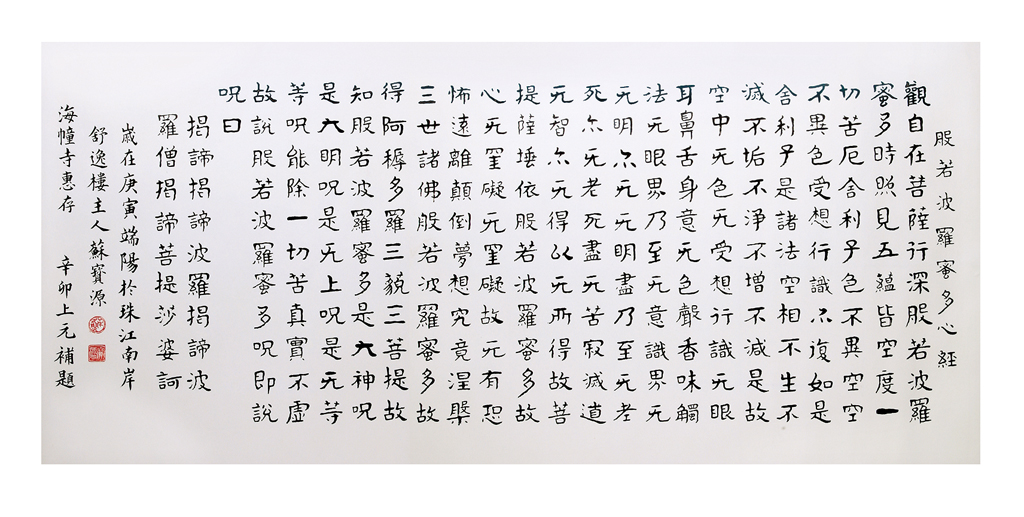 般若波羅蜜多心經
觀自在菩薩行深般若波羅
蜜多時照見五蘊皆空度一
切苦厄舍利子色不異空空
不異色受想行識亦復如是
舍利子是諸法空相不生不
滅不垢不淨不增不減是故
空中无色无受想行識无眼
耳鼻舌身意无色聲香味觸
法无眼界乃至无意識界无
无明亦无无明盡乃至无老
死亦无老死盡无苦寂滅道
无智亦无得以无所得故菩
提薩埵依般若波羅蜜多故
心无罣礙无罣礙故无有恐
怖遠離顛倒夢想究竟涅槃
三世諸佛般若波羅蜜多故
得阿耨多羅三藐三菩提故
知般若波羅蜜多是大神呪
是大明呪是无上呪是无等
等呪能除一切苦真實不虛
故說般若波羅蜜多呪即說
呪曰
揭諦揭諦波羅揭諦波
羅僧揭諦菩提莎婆訶
歲在庚寅端陽於珠江南岸
舒逸樓主人蘇寶源
海幢寺惠存 辛卯上元補題